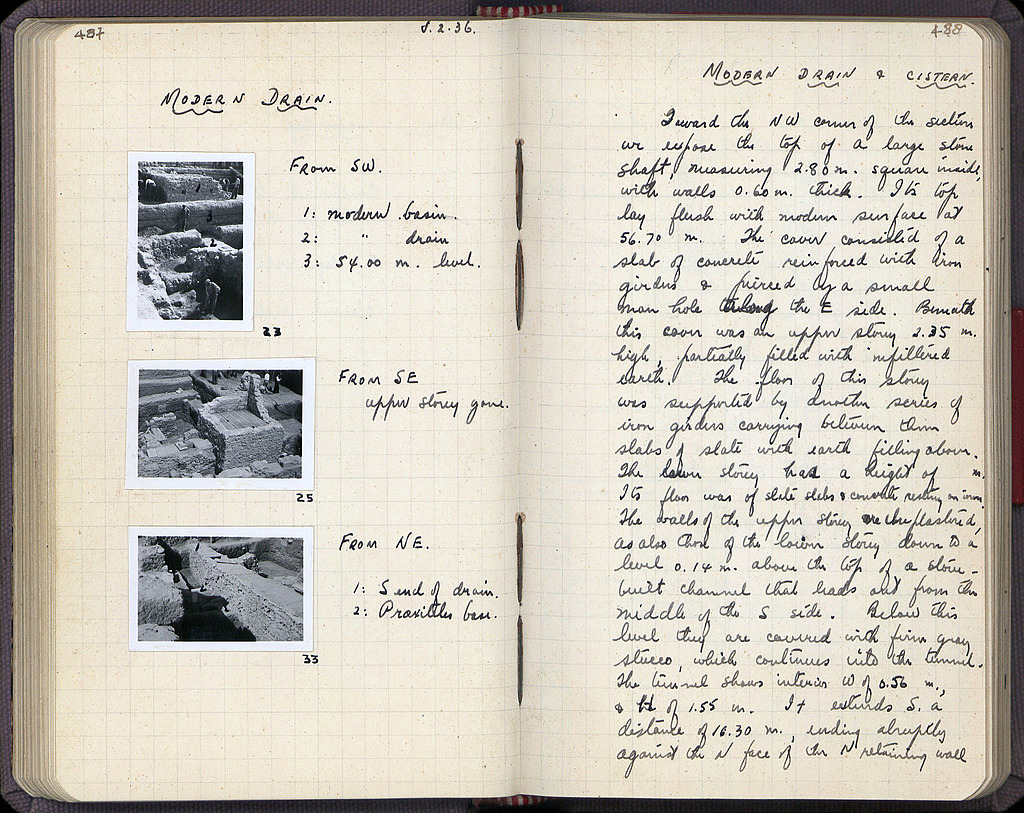 487
8.2.36.
MODERN DRAIN.
FROM SW.
1: modern basin.
2: " drain
3: 54.00 m. level.
23
FROM SE
upper storey gone.
25
FROM NE.
1: S end of drain.
2: Praxiteles base.
33
488
MODERN DRAIN & CISTERN.
Toward the NW corner of the section
we expose the top of a large stone
shaft, measuring 2.80 m. square inside,
with walls 0.60 m. thick. Its top
lay flush with modern surface at
56.70 m. The cover consisted of a
slab of concrete reinforced with iron
girders & pierced by a small
man hole along the E side. Beneath
this cover was an upper storey 2.35 m.
high, partially filled with infiltered
earth. The floor of this storey
was supported by another series of
iron girders carrying between them
slabs of slate with earth filling above.
The lower storey had a height of m.
Its floor was of slate slabs & concrete resting on iron.
The walls of the upper storey are unplastered,
as also those of the lower storey down to a
level 0.14 m. above the top of a stone-
built channel that leads out from the
middle of the S side. Below this
level they are covered with firm gray
stucco, which continues into the tunnel.
The tunnel shows interior W of 0.56 m.,
& H of 1.55 m. It extends S. a
distance of 16.30 m., ending abruptly
against the N face of the N retaining wall